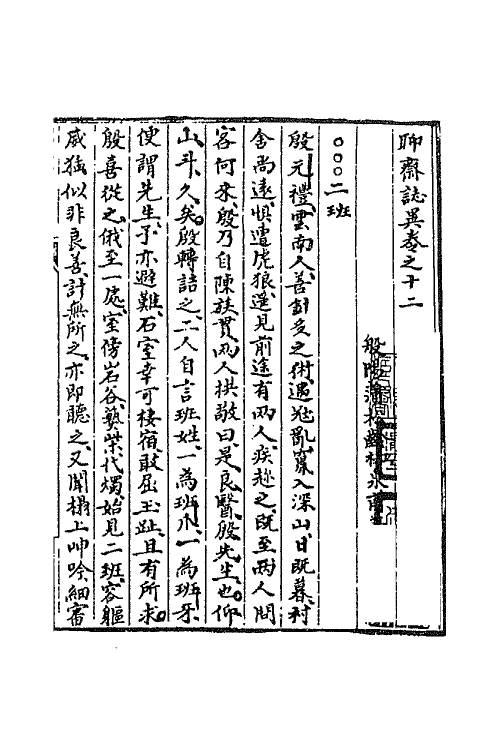 聊齋誌異卷之十二
般陽蒲松齡
○○○二班
殷元禮雲南人善針灸之術遇寇亂竄入深山日既暮村
舍尚遠惧遭虎狼遥見前途有两人疾趁之既至两人問
客何來殷乃自陳族貫两人拱敬曰是良醫殷先生也仰
山斗久矣殷轉詰之二人自言班姓一為班爪一為班牙
便謂先生予亦避難石室幸可棲宿敢屈玉趾且有所求
殷喜從之俄至一處室傍岩谷爇柴代燭始見二班容軀
威猛似非良善計無所之亦即聽之又聞榻上呻吟細審